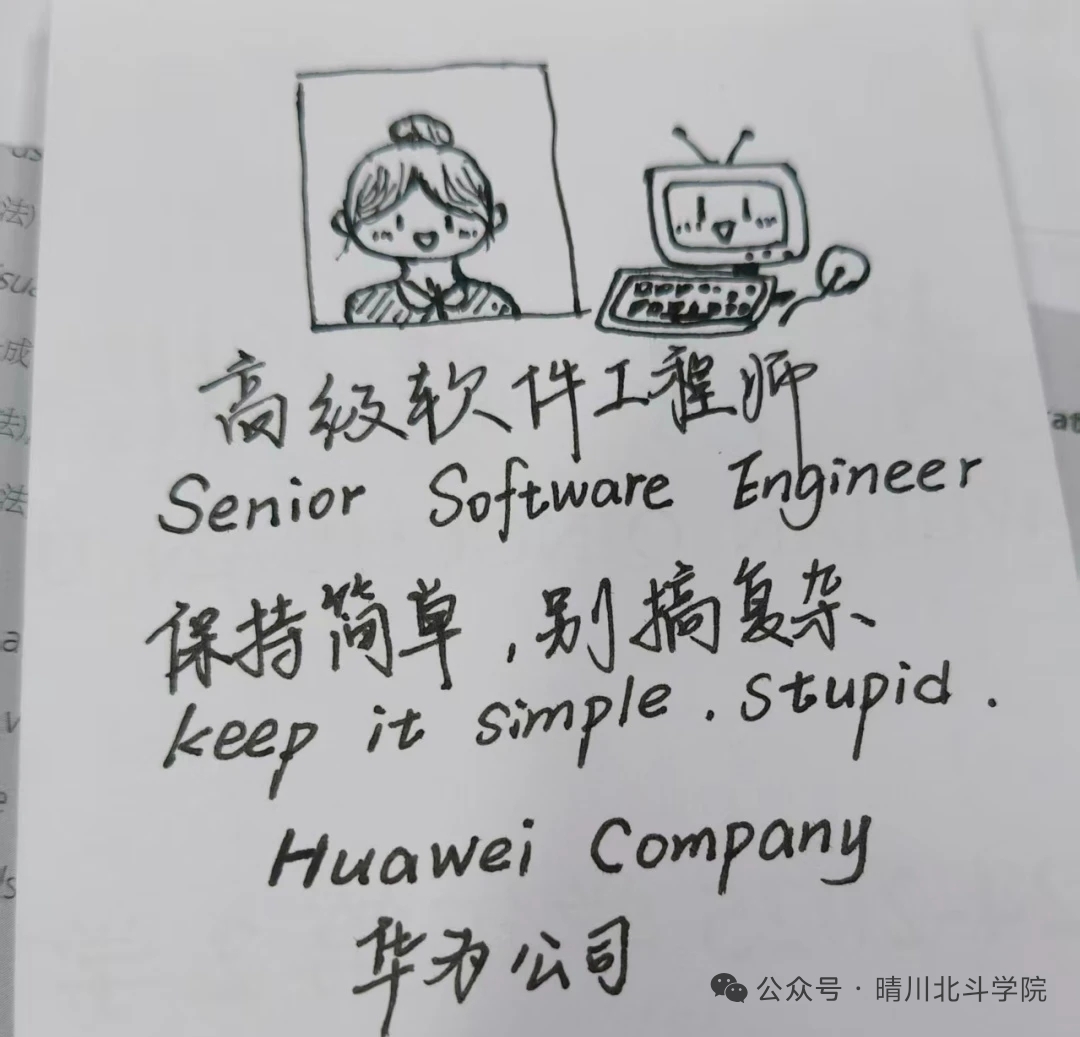 高级软件工程师
Senior Software Engineer
保持简单,别搞复杂
keep it simple. stupid.
Huawei Company
华为公司
公众号 · 晴川北斗学院